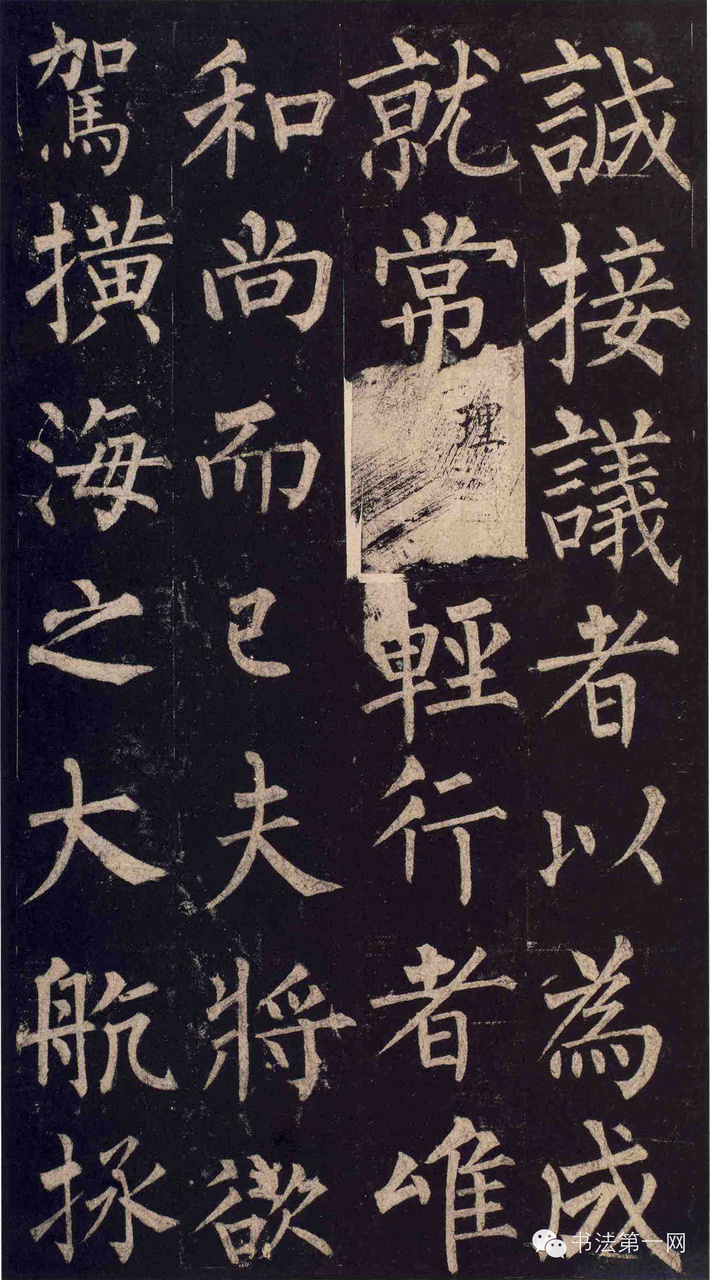 誠接議者以為成
就常
理
輕行者唯
和尚而已夫將欲
駕撗海之大航拯
书法第一网